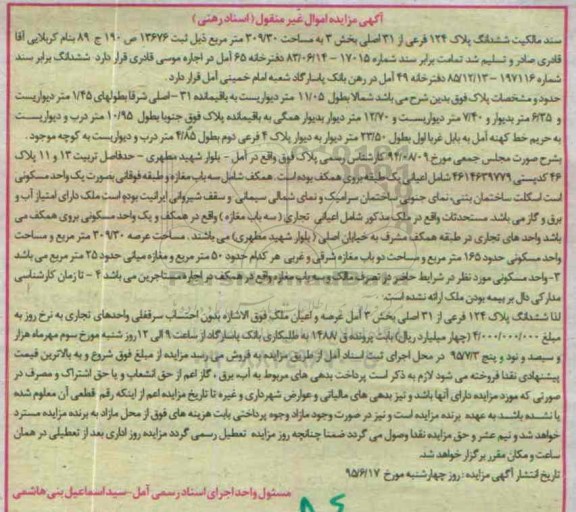 آگهی مزایده اموال غیر منقول (اسناد رهنی)
سند مالکیت ششدانگ پلاک ۱۲۴ فرعی از ۳۱ اصلی بخش ۳ به مساحت ۳۰۹/۳۰ متر مربع ذیل ثبت ۱۳۶۷۶ ص ۱۹۰ ج ۸۹ بنام کربلایی آقا
قادری صادر و تسلیم شد تمامت برابر سند شماره ۱۷۰۱۵ – ۸۳/۰۶/۱۴ دفترخانه ۶۵ آمل در اجاره موسی قادری قرار دارد ششدانگ برابر سند
شماره ۱۹۷۱۱۶ – ۸۵/۱۲/۱۳ دفترخانه ۴۹ آمل در رهن بانک پاسارگاد شعبه امام خمینی آمل قرار دارد.
حدود و مشخصات پلاک فوق بدین شرح می باشد شمالا بطول ۱۱/۰۵ متر دیواریست به باقیمانده ۳۱ – اصلی شرقا بطولهای ۱/۴۵ متر دیواریست
و ۶/۳۵ متر بدیوار و ۷/۴۰ متر دیواریست و ۱۲/۷۰ متر دیوار بدیوار همگی به باقیمانده پلاک فوق جنوبا بطول ۱۰/۹۵ متر درب و دیواریست
به حریم خط کهنه آمل به بابل غربا اول بطول ۲۳/۵۰ متر دیوار به دیوار پلاک ۴ فرعی دوم بطول ۴/۸۵ متر درب و دیواریست به کوچه موجود.
بشرح صورت مجلس جمعی مورخ ۹۴/۰۸/۰۹ کارشناس رسمی پلاک فوق واقع در آمل – بلوار شهید مطهری – حدفاصل تربیت ۱۳ و ۱۱ پلاک
۴۶ کدپستی ۴۶۱۴۶۳۹۷۷۹ شامل اعیانی یک طبقه بروی همکف بوده است. همکف شامل سه باب مغازه و طبقه فوقانی بصورت یک واحد مسکونی
است اسکلت ساختمان بتنی، نمای جنوبی ساختمان سرامیک و نمای شمالی سیمانی و سقف شیروانی ایرانیت بوده و ملک دارای امتیاز آب و
برق و گاز می باشد. مستحدثات واقع در ملک مذکور شامل اعیانی تجاری (سه باب مغازه) واقع در همکف و یک واحد مسکونی بروی همکف می
باشد واحد های تجاری در طبقه همکف مشرف به خیابان اصلی (بلوار شهید مطهری) می باشند. مساحت عرصه ۳۰۹/۳۰ متر مربع و مساحت
واحد مسکونی حدود ۱۶۵ متر مربع و مساحت دو باب مغازه شرقی و غربی هر کدام حدود ۵۰ متر مربع و مغازه میانی حدود ۲۵ متر مربع می باشد
۳– واحد مسکونی مورد نظر در شرایط حاضر در تصرف مالک و سه باب مغازه واقع در همکف در اجاره مستاجرین می باشد ۴ – تا زمان کارشناسی
مدارکی دال بر بیمه بودن ملک ارائه نشده است.
لذا ششدانگ پلاک ۱۲۴ فرعی از ۳۱ اصلی بخش ۳ آمل عرصه و اعیان ملک فوق الاشاره بدون احتساب سرقفلی واحدهای تجاری به نرخ روز به
مبلغ ۴/۰۰۰/۰۰۰/۰۰۰ (چهار میلیارد ریال) بابت پرونده ق/۱۴۸۸ به طلبکاری بانک پاسارگاد از ساعت ۹ الی ۱۲ روز شنبه مورخ سوم مهرماه هزار
و سیصد و نود و پنج ۹۵/۷/۳ در محل اجرای ثبت اسناد آمل از طریق مزایده به فروش می رسد مزایده از مبلغ فوق شروع و به بالاترین قیمت
پیشنهادی نقدا فروخته می شود لازم به ذکر است پرداخت بدهی های مربوط به آب، برق، گاز اعم از حق انشعاب و یا حق اشتراک و مصرف در
صورتی که مورد مزایده دارای آنها باشد و نیز بدهی های مالیاتی و عوارض شهرداری و غیره تا تاریخ مزایده اعم از اینکه رقم قطعی آن معلوم شده
یا نشده باشد به عهده برنده مزایده است و نیز در صورت وجود مازاد وجوه پرداختی بابت هزینه های فوق از محل مازاد به برنده مزایده مسترد
خواهد شد و نیم عشر و حق مزایده نقدا وصول می گردد ضمنا چنانچه روز مزایده تعطیل رسمی گردد مزایده روز اداری بعد از تعطیلی در همان
ساعت و مکان مقرر برگزار خواهد شد.
تاریخ انتشار آگهی مزایده: روز چهارشنبه مورخ ۹۵/۶/۱۷
مسئول واحد اجرای اسناد رسمی آمل – سید اسماعیل بنی هاشمی